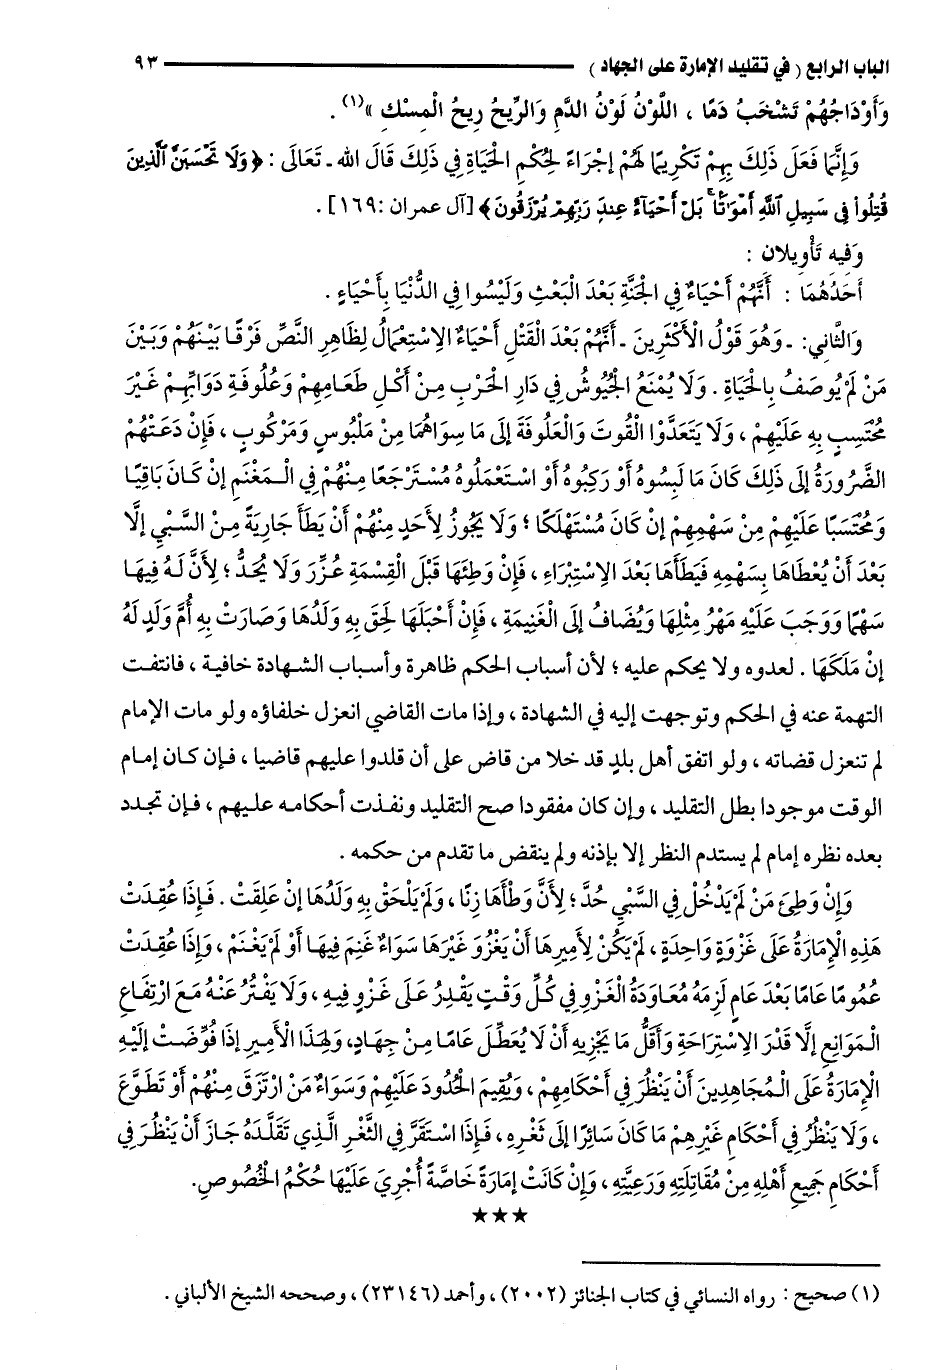 الباب الرابع ( في تقليد الإمارة على الجهاد ) ٩٣
وَأَوْدَاجُهُمْ تَشْخَبُ دَمًا ، اللَّوْنُ لَوْنُ الدَّمِ وَالرِّيحُ رِيحُ الْمِسْكِ »(١) .
وَإِنَّمَا فَعَلَ ذَلِكَ بِهِمْ تَكْرِيمًا لَهُمْ إجْرَاءً لِحُكْمِ الْحَيَاةِ فِي ذَلِكَ قَالَ الله ـ تَعَالَى : ﴿ وَلَا تَحْسَبَنَّ ٱلَّذِينَ
قُتِلُواْ فِى سَبِيلِ ٱللَّهِ أَمْوَٰتًۢا ۚ بَلْ أَحْيَآءٌ عِندَ رَبِّهِمْ يُرْزَقُونَ﴾ [آل عمران :١٦٩] .
وَفِيه تَأْوِيلان :
أَحَدُهُمَا : أَنَّهُمْ أَحْيَاءٌ فِي الْجَنَّةِ بَعْدَ الْبَعْثِ وَلَيْسُوا فِي الدُّنْيَا بِأَحْيَاءٍ .
وَالثَّانِي: ـ وَهُوَ قَوْلُ الْأَكْثَرِينَ ـ أَنَّهُمْ بَعْدَ الْقَتْلِ أَحْيَاءٌ الِاسْتِعْمَالُ لِظَاهِرِ النَّصِّ فَرْقًا بَيْنَهُمْ وَبَيْنَ
مَنْ لَمْ يُوصَفُ بِالْحَيَاةِ . وَلَا يُمْنَعُ الْجُيُوشُ فِي دَارِ الْحَرْبِ مِنْ أَكْلِ طَعَامِهِمْ وَعُلُوفَةِ دَوَابِّهِمْ غَيْرَ
مُحْتَسِبٍ بِهِ عَلَيْهِمْ ، وَلَا يَتَعَدَّوْا الْقُوتَ وَالْعَلُوفَةَ إلَى مَا سِوَاهُمَا مِنْ مَلْبُوسٍ وَمَرْكُوبٍ ، فَإِنْ دَعَتْهُمْ
الضَّرُورَةُ إلَى ذَلِكَ كَانَ مَا لَبِسُوهُ أَوْ رَكِبُوهُ أَوْ اسْتَعْمَلُوهُ مُسْتَرْجَعًا مِنْهُمْ فِي الْمَغْنَمِ إنْ كَانَ بَاقِيًا
وَمُحْتَسَبًا عَلَيْهِمْ مِنْ سَهْمِهِمْ إنْ كَانَ مُسْتَهْلَكًا ؛ وَلَا يَجُوزُ لِأَحَدٍ مِنْهُمْ أَنْ يَطَأَ جَارِيَةً مِنْ السَّبْيِ إلَّا
بَعْدَ أَنْ يُعْطَاهَا بِسَهْمِهِ فَيَطَأَهَا بَعْدَ الِاسْتِبْرَاءِ ، فَإِنْ وَطِئَهَا قَبْلَ الْقِسْمَةِ عُزِّرَ وَلَا يُحَدُّ ؛ لِأَنَّ لَهُ فِيهَا
سَهْمًا وَوَجَبَ عَلَيْهِ مَهْرُ مِثْلِهَا وَيُضَافُ إلَى الْغَنِيمَةِ ، فَإِنْ أَحْبَلَهَا لَحِقَ بِهِ وَلَدُهَا وَصَارَتْ بِهِ أُمَّ وَلَدٍ لَهُ
إنْ مَلَكَهَا . لعدوه ولا يحكم عليه ؛ لأن أسباب الحكم ظاهرة وأسباب الشهادة خافية ، فانتفت
التهمة عنه في الحكم وتوجهت إليه في الشهادة ، وإذا مات القاضي انعزل خلفاؤه ولو مات الإمام
لم تنعزل قضاته ، ولو اتفق أهل بلدٍ قد خلا من قاض على أن قلدوا عليهم قاضيا ، فإن كان إمام
الوقت موجودا بطل التقليد ، وإن كان مفقودا صح التقليد ونفذت أحكامه عليهم ، فإن تجدد
بعده نظره إمام لم يستدم النظر إلا بإذنه ولم ينقض ما تقدم من حكمه .
وَإِنْ وَطِئَ مَنْ لَمْ يَدْخُلْ فِي السَّبْيِ حُدَّ ؛ لِأَنَّ وَطْأَهَا زِنًا ، وَلَمْ يَلْحَقْ بِهِ وَلَدُهَا إنْ عَلِقَتْ . فَإِذَا عُقِدَتْ
هَذِهِ الْإِمَارَةُ عَلَى غَزْوَةٍ وَاحِدَةٍ ، لَمْ يَكُنْ لِأَمِيرِهَا أَنْ يَغْزُوَ غَيْرَهَا سَوَاءٌ غَنِمَ فِيهَا أَوْ لَمْ يَغْنَمْ ، وَإِذَا عُقِدَتْ
عُمُومًا عَامًا بَعْدَ عَامٍ لَزِمَهُ مُعَاوَدَةُ الْغَزْوِ فِي كُلِّ وَقْتٍ يَقْدِرُ عَلَى غَزْوٍ فِيهِ ، وَلَا يَفْتُرُ عَنْهُ مَعَ ارْتِفَاعِ
الْمَوَانِعِ إلَّا قَدْرَ الِاسْتِرَاحَةِ وَأَقَلُّ مَا يَجْزِيهِ أَنْ لَا يُعَطِّلَ عَامًا مِنْ جِهَادٍ، وَلِهَذَا الْأَمِيرِ إذَا فُوِّضَتْ إلَيْهِ
الْإِمَارَةُ عَلَى الْمُجَاهِدِينَ أَنْ يَنْظُرَ فِي أَحْكَامِهِمْ ، وَيُقِيمَ الْحُدُودَ عَلَيْهِمْ وَسَوَاءٌ مَنْ ارْتَزَقَ مِنْهُمْ أَوْ تَطَوَّعَ
، وَلَا يَنْظُرُ فِي أَحْكَامِ غَيْرِهِمْ مَا كَانَ سَائِرًا إلَى ثَغْرِهِ ، فَإِذَا اسْتَقَرَّ فِي الثَّغْرِ الَّذِي تَقَلَّدَهُ جَازَ أَنْ يَنْظُرَ فِي
أَحْكَامِ جَمِيعِ أَهْلِهِ مِنْ مُقَاتِلَتِهِ وَرَعِيَّتِهِ ، وَإِنْ كَانَتْ إمَارَةً خَاصَّةً أُجْرِيَ عَلَيْهَا حُكْمُ الْخُصُوصِ.
★★★
(١) صحيح : رواه النسائي في كتاب الجنائز (٢٠٠٢) ، وأحمد (٢٣١٤٦) ، وصححه الشيخ الألباني .